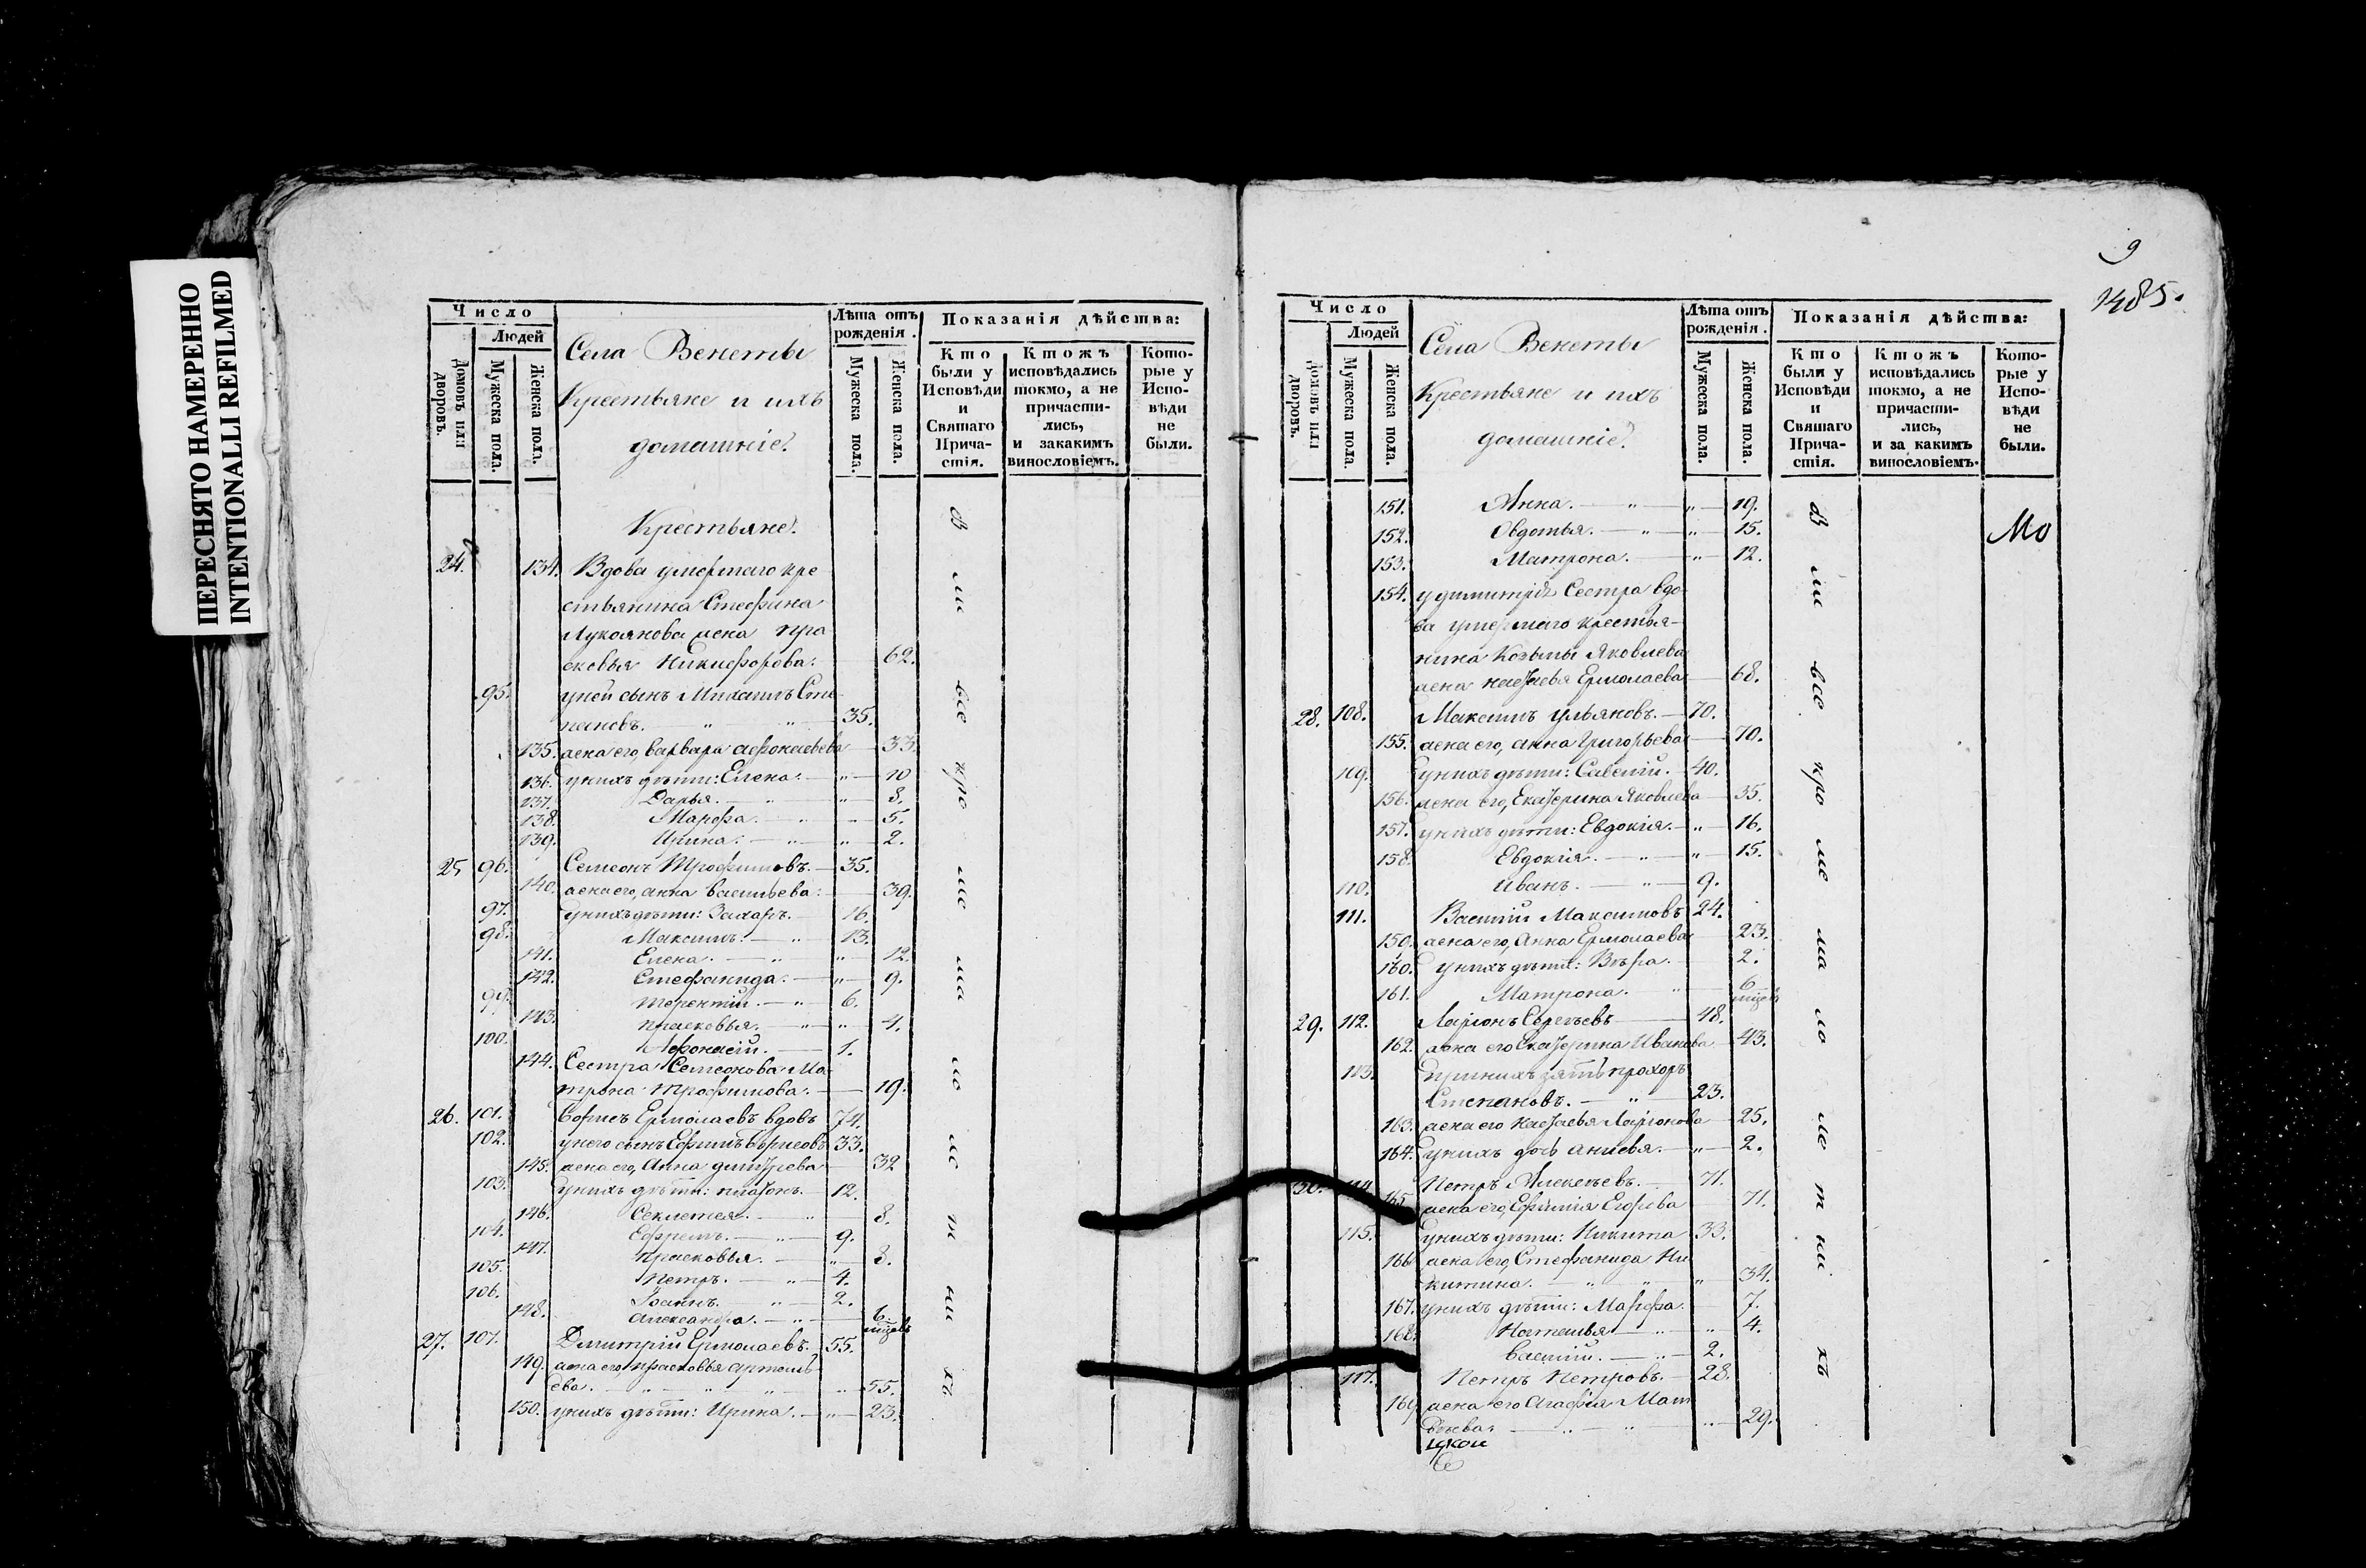 ПЕРЕСНЯТО НАМЕРЕННО
INTENTIONALLI REFILMED
Число
Людей
Домовъ или дворовъ.
Мужеска пола.
Женска пола.
Села Венеты
Крестьяне и ихъ
домашніе.
Лѣта отъ рожденія.
Мужеска пола.
Женска пола.
Показанія дѣйства:
Кто были у Исповѣди и Святаго Причастія.
Ктожъ исповѣдались токмо, а не причастились, и закакимъ винословіемъ.
Которые у Исповѣди не были.
Крестьяне.
24. 134. Вдова умершаго кре
стьянина Стефана
Лукоянова жена пра
сковья Никифорова. 62.
95. уней сынъ Михаилъ Сте
пановъ. 35.
135. жена его, варвара афонасьева 33.
136. унихъ дѣти: Елена. 10
137. Дарья. 8.
138. Марфа. 5.
139. Ирина. 2.
25 96. Семеонъ Трофимовъ. 35.
140. жена его, анна васильева: 39.
97. унихъ дѣти: Захаръ. 16.
98. Максимъ. 13.
141. Елена. 12.
142. Стефанида. 9.
99. терентій. 6.
143. прасковья. 4.
100. Афонасій. 1.
144. Сестра Семеонова Ма
трона Трофимова. 19.
26. 101. борисъ Ермолаевъ вдовъ 74.
102. унего сынъ Ефимъ борисовъ 33.
145. жена его, Анна дмитрева 32
103. унихъ дѣти: платонъ. 12.
146. Секлетея. 8.
104. Ефремъ. 9.
147. прасковья. 8.
105. Петръ. 4.
106. Іоаннъ. 2.
148. александра. 6 мцов
27. 107. Дмитрій Ермолаевъ. 55.
149. жена его, прасковья артемь
ева. 55.
150. унихъ дѣти: Ирина. 23.
В
ше
все
кре
ше
ша
но
ле
т
ни
хъ
9
1485.
Число
Людей
Домовъ или дворовъ.
Мужеска пола.
Женска пола.
Села Венеты
Крестьяне и ихъ
домашніе.
Лѣта отъ рожденія.
Мужеска пола.
Женска пола.
Показанія дѣйства:
Кто были у Исповѣди и Святаго Причастія.
Ктожъ исповѣдались токмо, а не причастились, и за какимъ винословіемъ.
Которые у Исповѣди не были.
151. Анна. 19.
152. Овдотья. 15.
153. Матрона. 12.
154. у димитрія Сестра вдо
ва умершаго крестья-
нина Козьмы Яковлева
жена настасья Ермолаева 68.
28. 108. Максимъ ульяновъ. 70.
155. жена его, анна Григорьева 70.
109. унихъ дѣти: Савелій. 40.
156. жена его, Екатерина Яковлева 35.
157. унихъ дѣти: Евдокія. 16.
158. Евдокія. 15.
110. иванъ. 9.
111. Василій Максимовъ 24.
150. жена его, Анна Ермолаева 23.
160. унихъ дѣти: Вѣра. 2.
161. Матрона. 6 мцов
29. 112. Ларіонъ Сергѣевъ 48.
162. жена его Екатерина Иванова 43.
113. принихъ зять прохоръ
Степановъ. 23.
163. жена его настасья Ларіонова 25.
164. унихъ дочь анисья. 2.
30. 114. Петръ Алексѣевъ. 71.
165. жена его, Ефимія Егорева 71.
115. унихъ дѣти: Никита 33.
166 жена его, Стефанида Ни
китина. 34.
167. унихъ дѣти: Марфа. 7.
168. Наталья 4.
василій. 2.
117. Петръ Петровъ. 28.
169 жена его Агафія Мат
вѣева. 29.
Мо